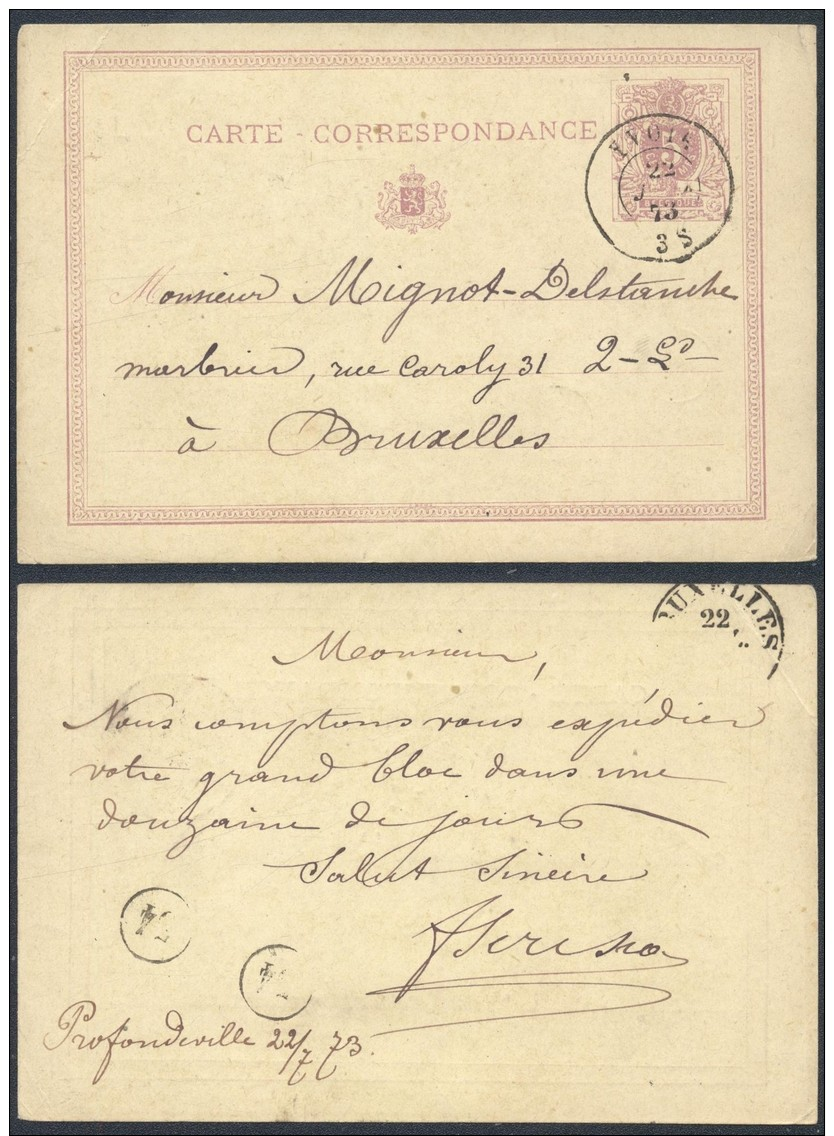 CARTE - CORRESPONDANCE
YVOIR
22
73
3 S
Monsieur Mignot-Delstanche
marbrier, rue Caroly 31
à Bruxelles
BRUXELLES
22
Monsieur,
Nous comptons vous expédier
votre grand bloc dans une
douzaine de jours
Salut Sincère
Profondeville 22/7 73.